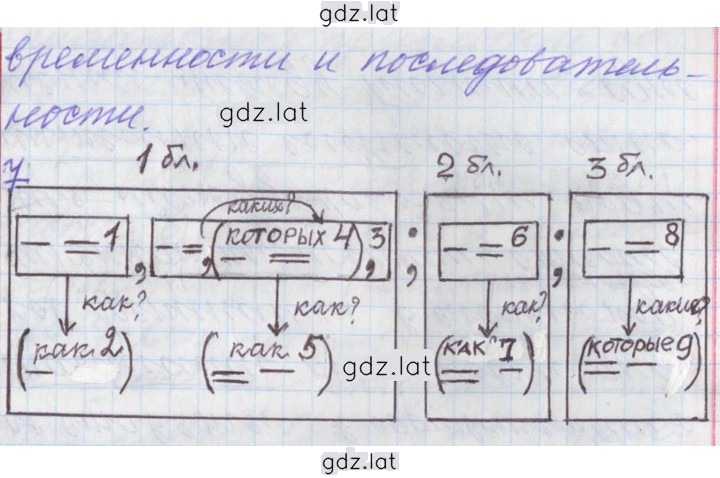 gdz.lat
временности и последователь-
ности.
gdz.lat
7
1 бл. 2 бл. 3 бл.
каких?
1, (которых 4), 3; 6; 8
как? как? как? какие?
(как 2) (как 5) (как 7) (которые 9)
gdz.lat
gdz.lat